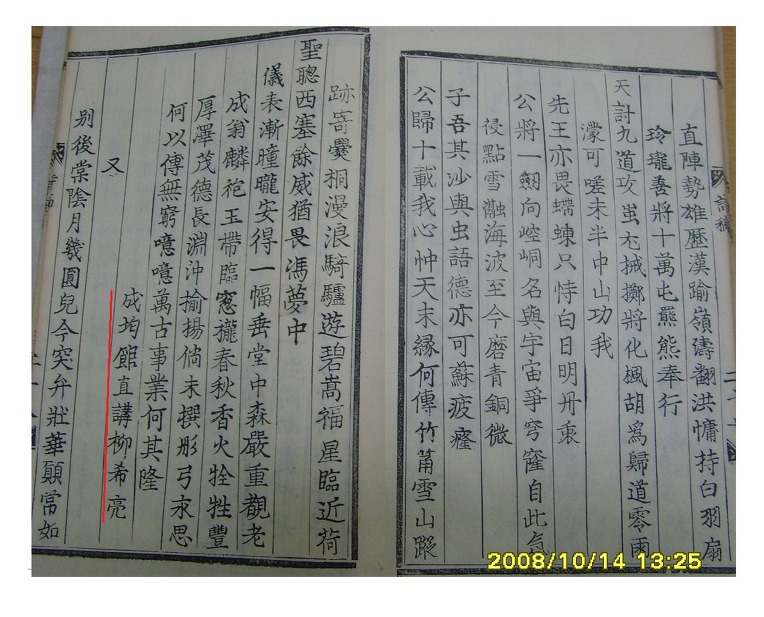 直陣勢雄壓漢踰嶺濤翻洪慵持白羽扇
玲瓏善將十萬屯羆熊奉行
天討九道攻蚩尤械擲將化楓胡爲歸道零雨
濛可嗟未半中山功我
先王亦畏蝀只恃白日明丹衷
公將一劒向崆峒名與宇宙爭穹窿自此氣
祲點雪瀜海波至今磨青銅微
子吾其沙與虫語德亦可蘇疲癃
公歸十載我心忡天末緣何傳竹莆雪山蹤
跡奇爨桐漫浪騎驢遊碧嵩福星臨近荷
聖聰西塞餘威猶畏馮夢中
儀表漸曈曨安得一幅垂堂中森嚴重覩老
成翁麟袍玉帶臨窓櫳春秋香火牷牲豐
厚澤茂德長淵沖揄揚倘未撰彤弓永思
何以傳無窮噫噫萬古事業何其隆
成均館直講柳希亮
又
別後棠陰月幾圓兒今突弁壯華顚當如
2008/10/14 13:25